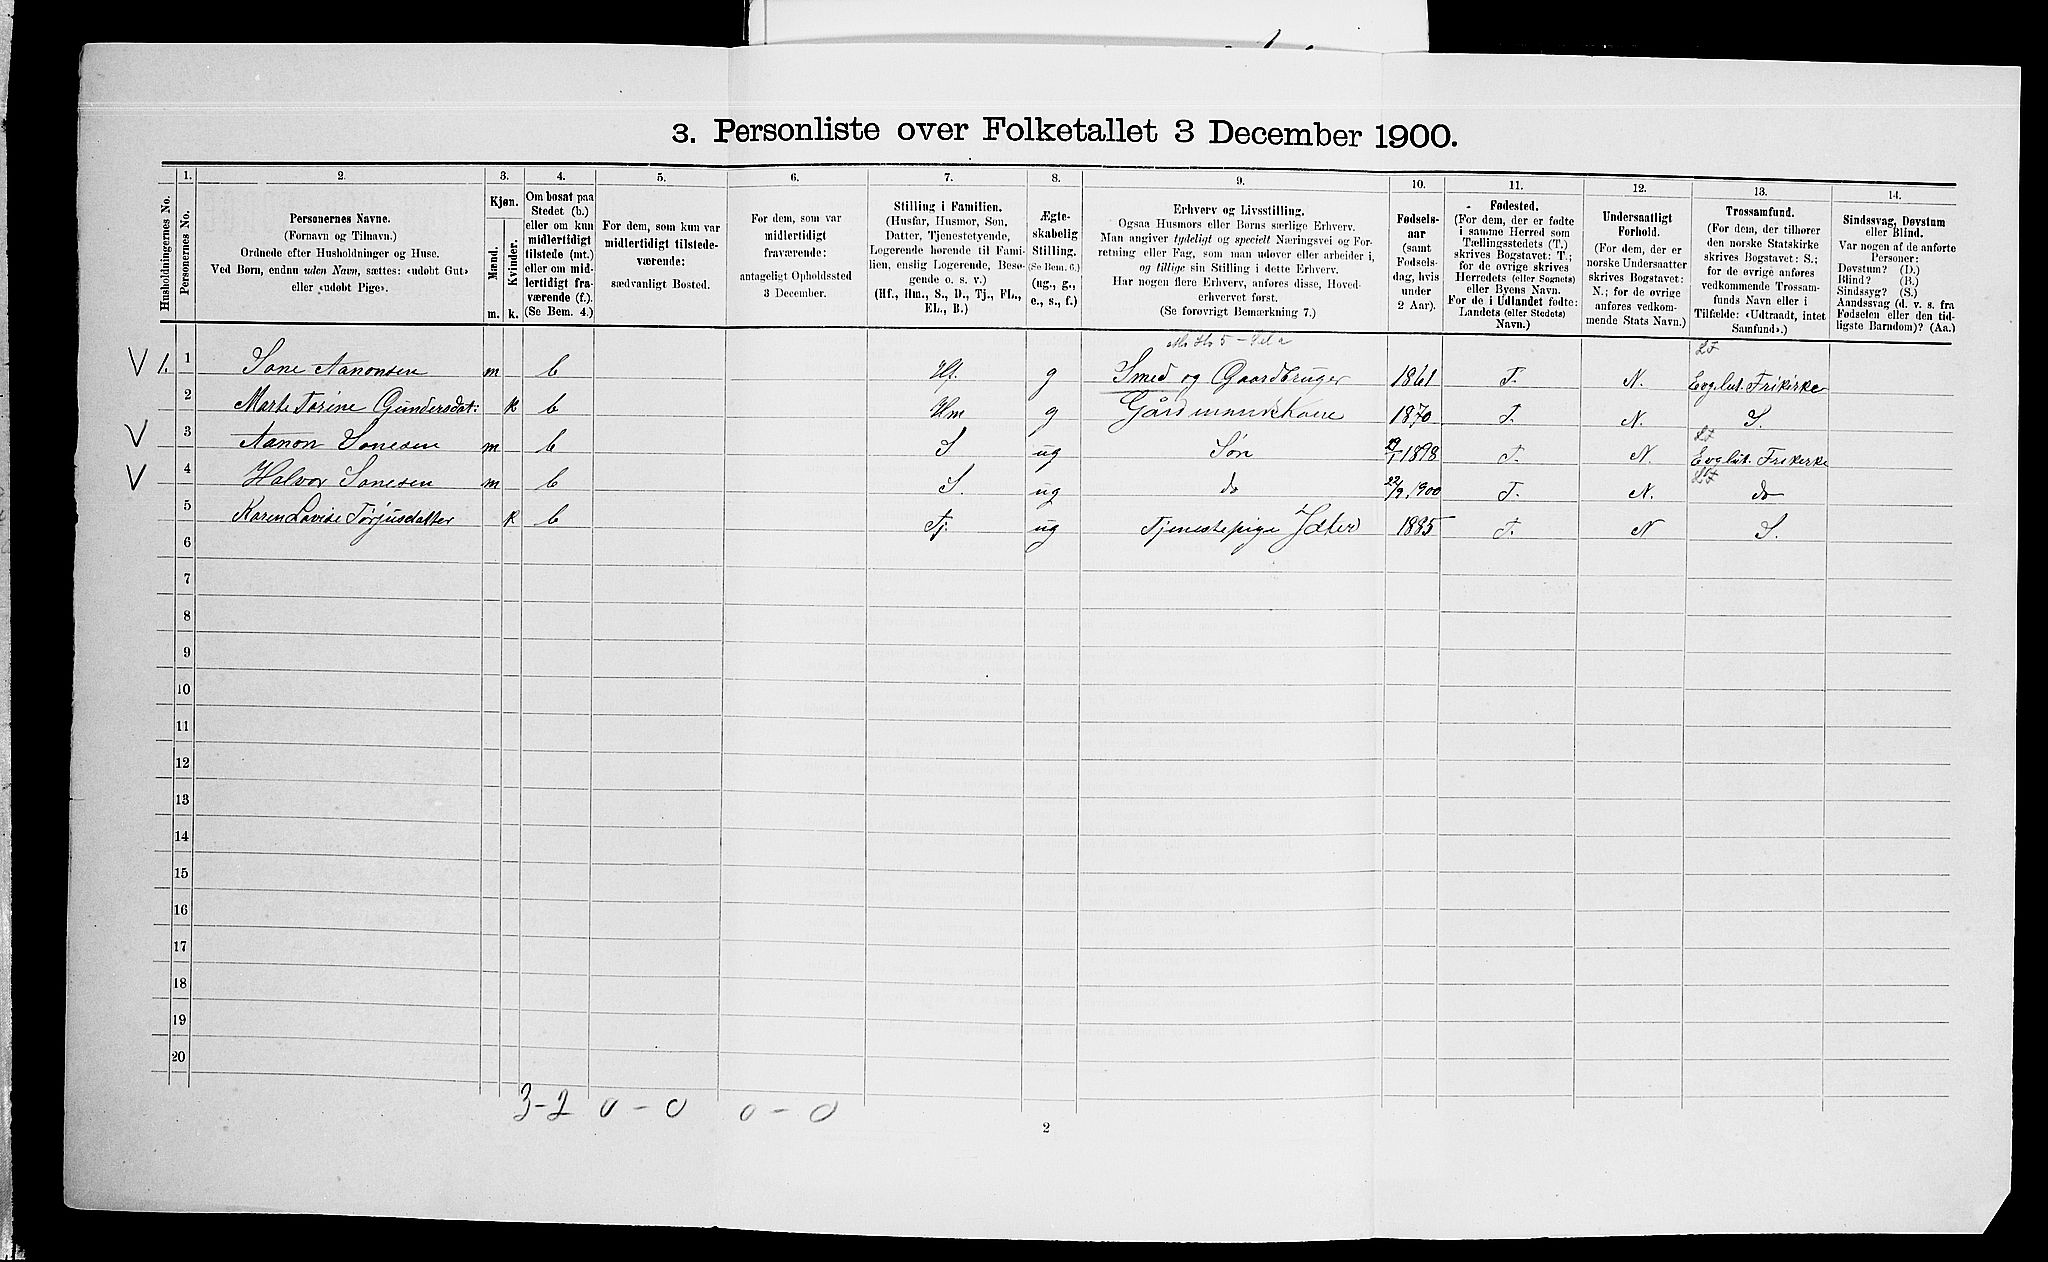 3. Personliste over Folketallet 3 December 1900.
1. 2. 3. 4. 5. 6. 7. 8. 9. 10. 11. 12. 13. 14.
Husholdningernes No.
Personernes No.
Personernes Navne.
(Fornavn og Tilnavn.)
Ordnede efter Husholdninger og Huse.
Ved Børn, endnu uden Navn, sættes: «udøbt Gut»
eller «udøbt Pige».
Kjøn.
Mænd.
Kvinder.
m. k.
Om bosat paa
Stedet (b.)
eller om kun
midlertidigt
tilstede (mt.)
eller om mid-
lertidigt fra-
værende (f.).
(Se Bem. 4.)
For dem, som kun var
midlertidigt tilstede-
værende:
sædvanligt Bosted.
For dem, som var
midlertidigt
fraværende:
antageligt Opholdssted
3 December.
Stilling i Familien.
(Husfar, Husmor, Søn,
Datter, Tjenestetyende,
Logerende hørende til Fami-
lien, enslig Logerende, Besø-
gende o. s. v.)
(Hf., Hm., S., D., Tj., FL.,
EL., B.)
Ægte-
skabelig
Stilling.
(Se Bem. 6.)
(ug., g.,
e., s., f.)
Erhverv og Livsstilling.
Ogsaa Husmors eller Børns særlige Erhverv.
Man angiver tydeligt og specielt Næringsvei og For-
retning eller Fag, som man udøver eller arbeider i,
og tillige sin Stilling i dette Erhverv.
Har nogen flere Erhverv, anføres disse, Hoved-
erhvervet først.
(Se forøvrigt Bemærkning 7.)
Fødsels-
aar
(samt
Fødsels-
dag, hvis
under
2 Aar).
Fødested.
(For dem, der er fødte
i samme Herred som
Tællingsstedets (T.)
skrives Bogstavet: T.;
for de øvrige skrives
Herredets (eller Sognets)
eller Byens Navn.
For de i Udlandet fødte:
Landets (eller Stedets)
Navn.)
Undersaatligt
Forhold.
(For dem, der er
norske Undersaatter
skrives Bogstavet:
N.; for de øvrige
anføres vedkom-
mende Stats Navn.)
Trossamfund.
(For dem, der tilhører
den norske Statskirke
skrives Bogstavet: S.;
for de øvrige anføres
vedkommende Trossam-
funds Navn eller i
Tilfælde: «Udtraadt, intet
Samfund».)
Sindssvag, Døvstum
eller Blind.
Var nogen af de anførte
Personer:
Døvstum? (D.)
Blind? (B.)
Sindssyg? (S.)
Aandssvag (d. v. s. fra
Fødselen eller den tid-
ligste Barndom)? (Aa.)
V 1. 1 Sone Aanonsen m b Hf. g Smed og Gaardbruger 1861 T. N. Evglut. Frikirke
2 Marte Torine Gundersdat: k b Hm g Gårdmandskone 1870 T. N. S.
V 3 Aanon Sonesen m b S ug Søn 1898 T. N. Evglut. Frikirke
V 4 Halvor Sonesen m b S. ug do 22/9 1900 T. N. do
5 Karen Lovise Torjusdatter k b Tj. ug Tjenestepige 1885 T. N S.
6
7
8
9
10
11
12
13
14
15
16
17
18
19
20
3-2 0-0 0-0
2